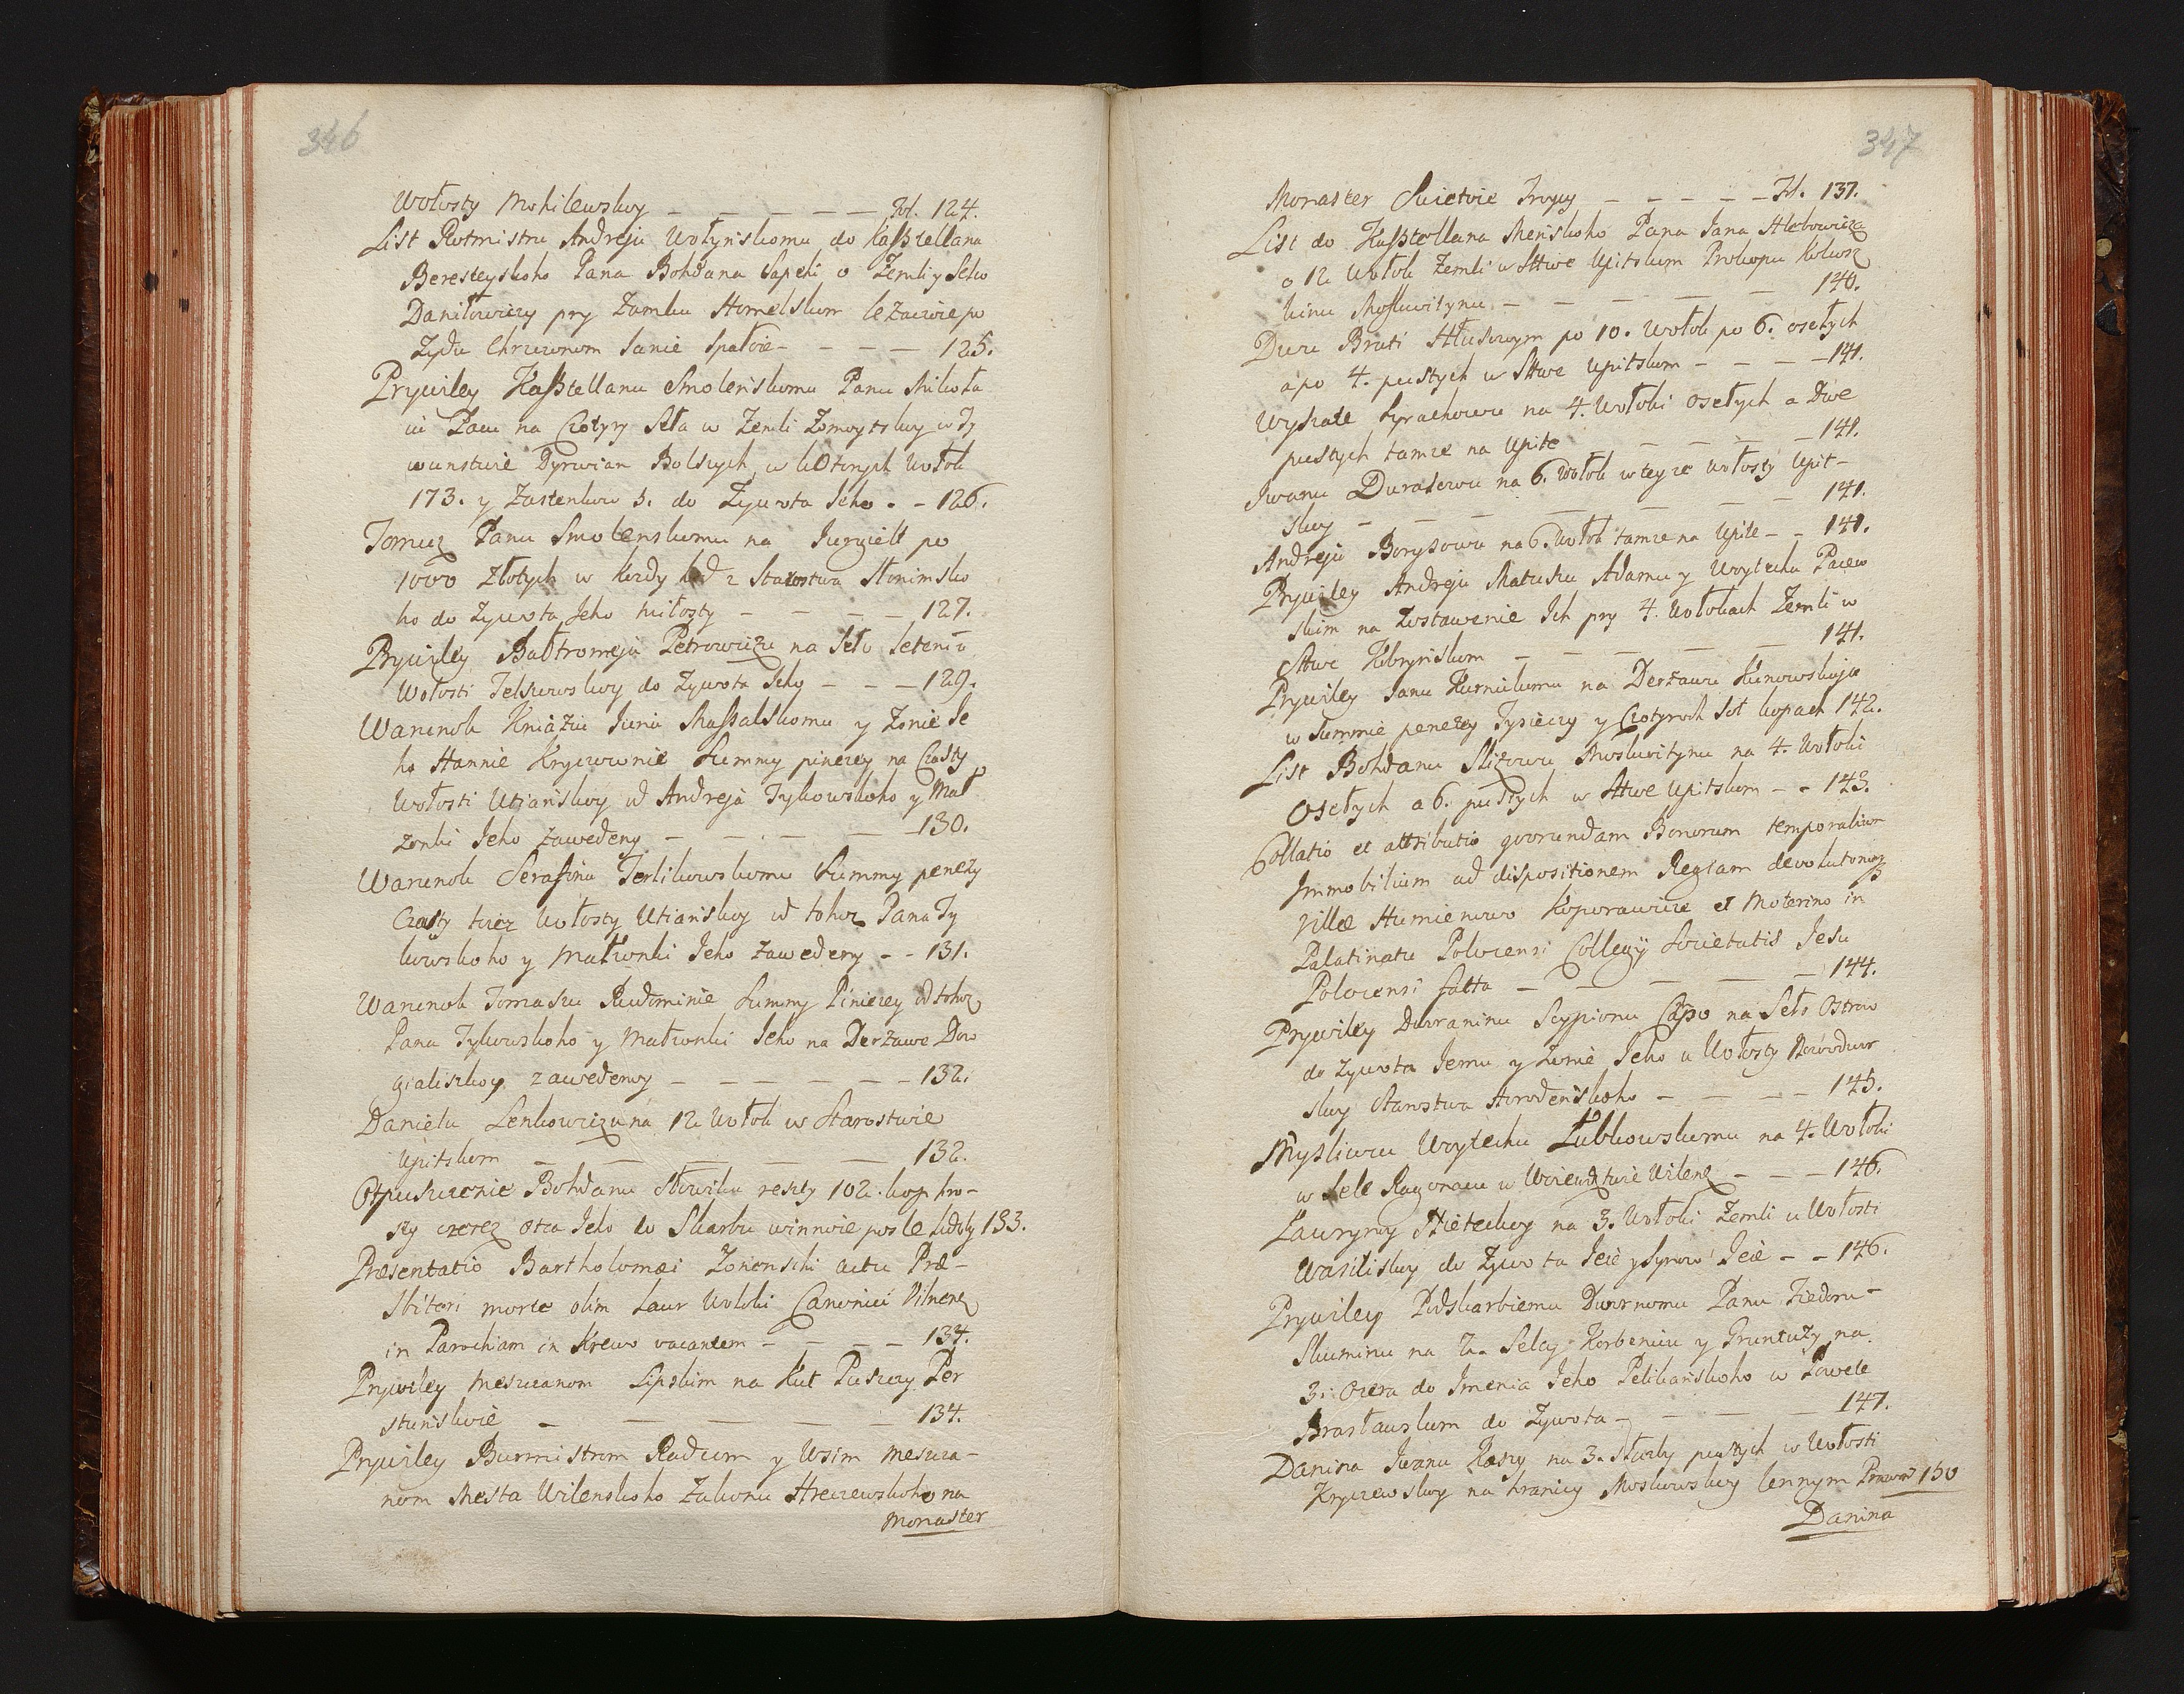 346
Wołosty Mohilewskoy — — — — — Fol. 124.
List Rotmistru Andreju Wołynskomu do Kasztellana
Beresteyskoho Pana Bohdana Sapehi o Zemli y Seło
Daniłowiczy pry Zamku Homelskom leżaczoie po
Zydu Chrczonom Sanie Spałoie — — — — 125.
Prywiley Kasztellanu Smolenskomu Panu Mikoła
iu Pacu na Czotyry Sẽła w Zemli Żomoytskoy w Ty
wunstwie Dyrwian Bolszych, w kotorych Wołok
173. y Zastenkow 5. do Zywota Jeho - - 126.
Tomuz Panu Smolenskomu na Jurgielt po
1000 Złotych w Kozdy hod z Starostwa Słonimsko
ho do Zywota Jeho miłosty — — — — 127.
Prywiley Bałtromeju Petrowiczu na Seło Seteniu
Wołosti Telszowskoy do Zywota Jeho — — — 129.
Warunok Kniaziu Juriu Massalskomu y Żonie Je
ho Hannie Kryczownie Summy pinezey na Czasty
Wołosti Utianskoy od Andreja Tykowskoho y Mał
zonki Jeho zawedeny — — — — 130.
Warunok Serafinu Terlikowskomu Summy penezy
Czasty treez Wołosty Utianskoy od tohoz Pana Ty
kowskoho y Małzonki Jeho zawedeny - - 131.
Warunok Tomaszu Rudominie Summy Pinezey od tohoz
Pana Tykowskoho y Małzonki Jeho na Derżawe Dow
gialiszkoy zawedenoy — — — — — — 132.
Danielu Senkowiczu na 12 Wołok w Starostwie
Upitskom — — — — — 132.
Otpuszczenie Bohdanu Słowiku reszty 102. kop hro-
szy czerez otca Jeho do Skarbu winnoie posle liczby 133.
Præsentatio Bartholomæi Zonenschi actu Præ-
sbiteri morte olim Laur Wolski Canonici Vilnens
in Parochiam in Krewo vacantem — — — — 134.
Prywiley Meszczanom Lipskim na Kut Puszczy Per
stunskoie — — — — — 134.
Prywiley Burmistrom Radcom y Wsim Meszcza-
nom Mesta Wilenskoho Zakonu Hreczewskoho na
Monaster
347
Monaster Swietoie Troycy — — — — — Fol. 137.
List do Kasztellana Menskoho Pana Jana Hlebowicza
o 12 Wołok Zemli w Sttwe Upitskom Prokopu Kolcoz
kinu Moskwitynu — — — — — 140.
Dwu Brati Hłuskoym po 10. Wołok po 6. osełych
a po 4. pustych w Sttwe Upitskom — — — — 141.
Wyszate Syrachowu na 4. Wołoki Osełych a Dwe
pustych tamze na Upite — — — — 141.
Jwanu Durasowu na 6. Wołok w teyze Wołosty Upit-
skoy — — — — — — 141.
Andreju Borysowu na 6. Wołok tamze na Upite - - 141.
Prywiley Andreju Matuszu Adamu y Woytechu Pacew
skim na Zostawenie Ich pry 4. Wołokach Zemli w
Sttwe Kobrynskom — — — — — 141.
Prywiley Janu Kurnickomu na Derżawu Kunowskuju
w Summie penezey Tysieczy y Czotyroch Sot kopach 142.
List Bohdanu Slizowu Moskwitynu na 4. Wołoki
Osełych a 6. pustych w Sttwe Upitskom - - 143.
Collatio et attributio qvorundam Bonorum temporalium
Immobilium ad dispositionem Regiam devolutorum
Villæ Humienowo Koporawicze et Moterino in
Palatinatu Polocensi Collegij Societatis Jesu
Polocensi facta — — — — — 144.
Prywiley Dworaninu Scypionu Capo na Seło Ostrow
do Zywota Jemu y Zonie Jeho u Wołosty Nowodwor
skoy Starostwa Horodenskoho — — — — 145.
Mysliwcu Woytechu Lubkowskomu na 4. Wołoki
w Sele Rayoracu w Woiewdztwie Wilens — — — 146.
Lawrynoy Stieteckoy na 3. Wołoki Zemli u Wołosti
Wasiliskoy do Zywota Jeie y Synow Jeie - - 146.
Prywiley Podskarbiemu Dwornomu Panu Fiedoru-
Skuminu na 2. Selcy Korbenicu y Gruntuzy na
3. Ozera do Jmenia Jeho Pelikanskoho w Powete
Brasławskom do Zywota — — — — 147.
Danina Jwanu Kaszy na 3. Służby pustych w Wołosti
Kryczewskoy na hranicy Moskowskoy lennym Prawom 150
Danina